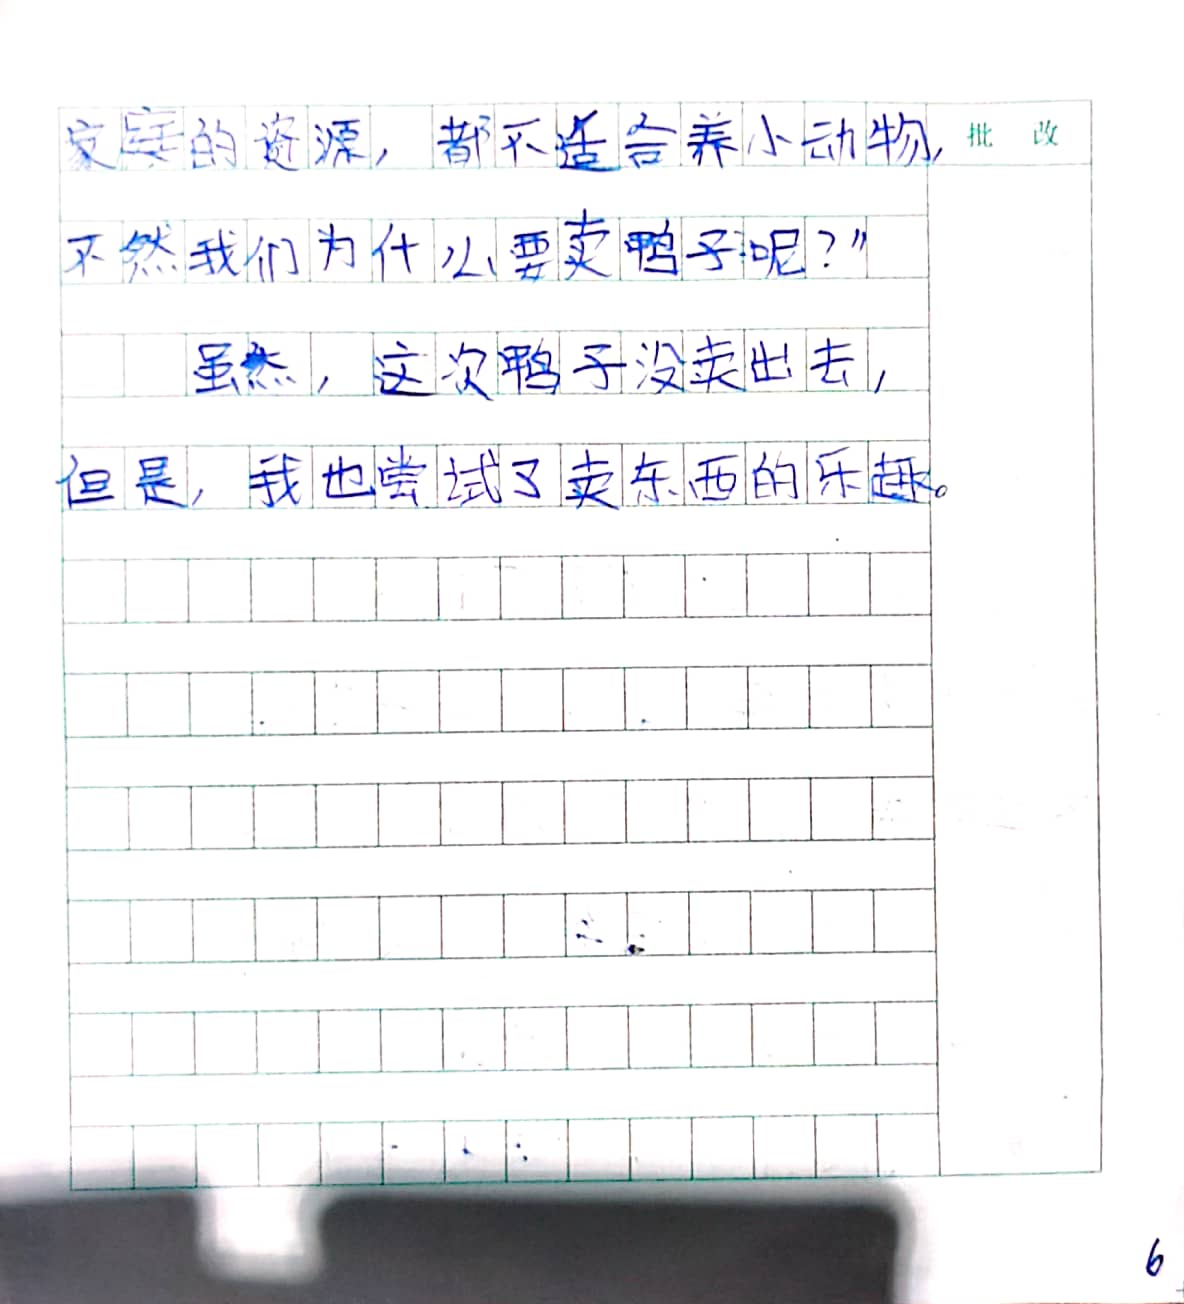 家庭的资源，都不适合养小动物，
批 改
不然我们为什么要卖鸭子呢？”
虽然，这次鸭子没卖出去，
但是，我也尝试了卖东西的乐趣。
6